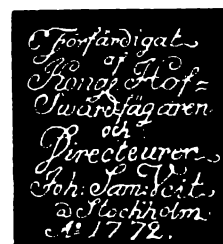 Förfärdigat
af
Kongl. Hof=
Swärdfägaren
och
Directeuren
Joh: Sam: Veit
a Stockholm.
A: 1772.